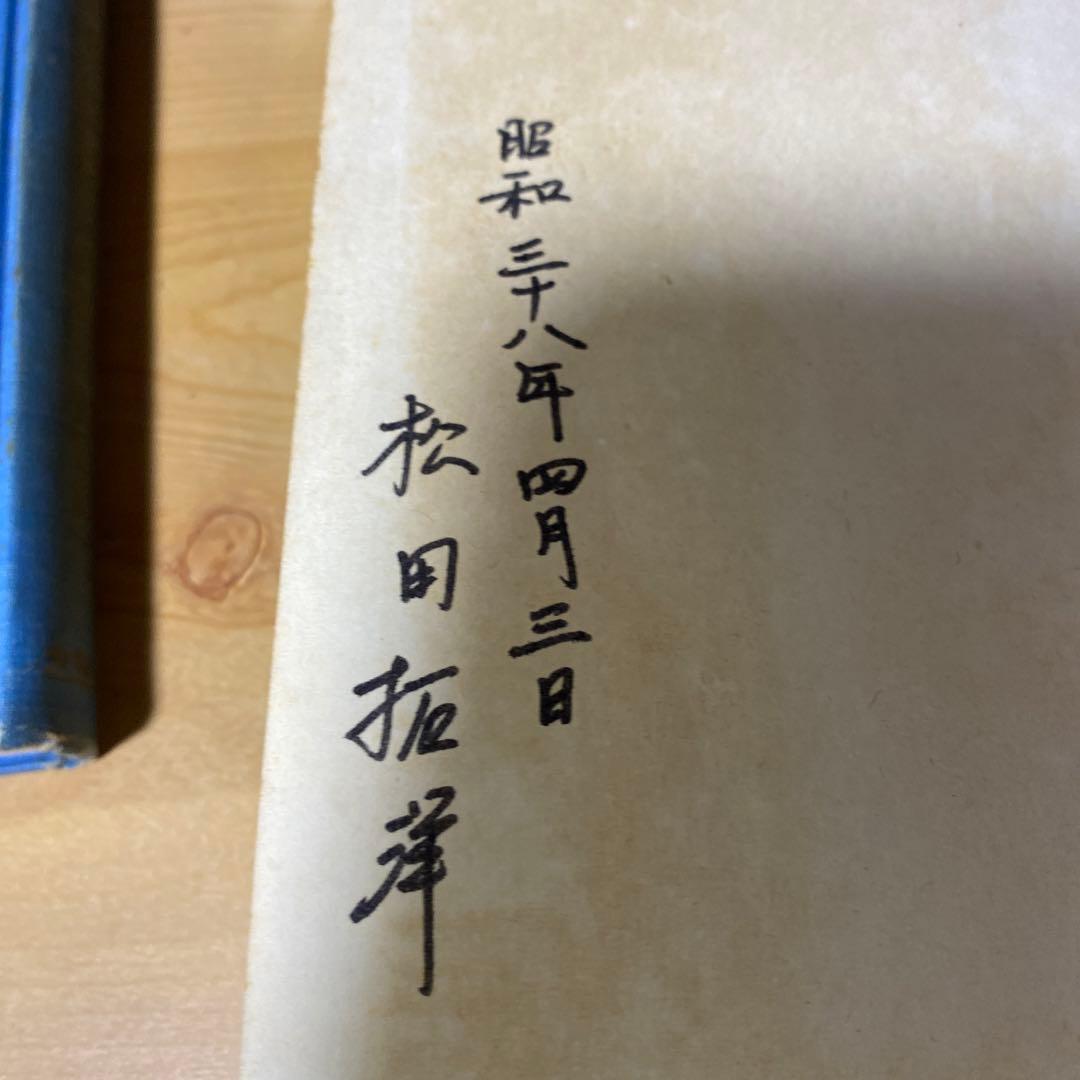 昭和三十八年四月三日
松田拓洋